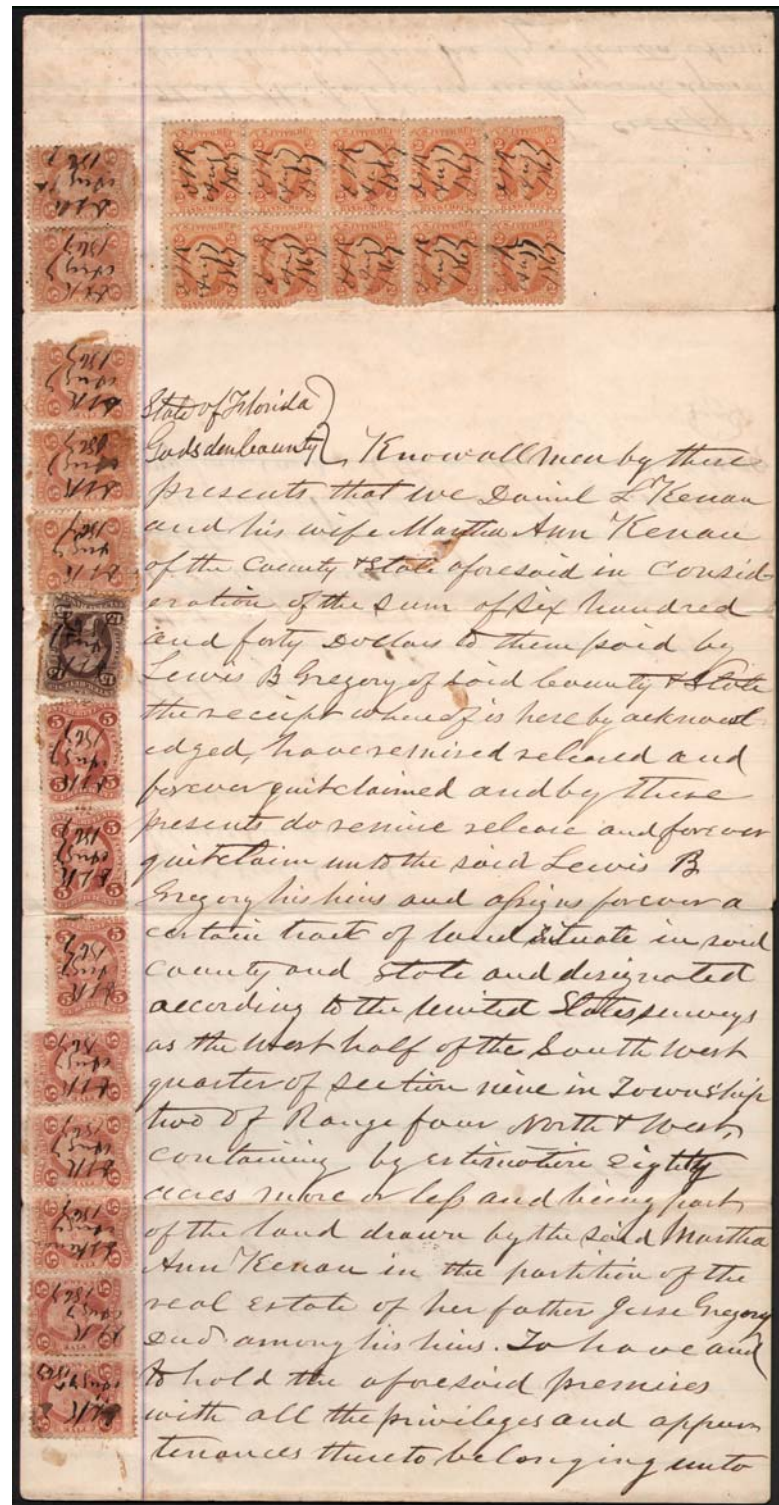 State of Florida
Gadsden County } Know all men by these
presents that we Daniel L Kenan
and his wife Martha Ann Kenan
of the County & State aforesaid in Consid-
eration of the sum of Six hundred
and forty Dollars to them paid by
Lewis B Gregory of said County & State
the receipt whereof is hereby acknowl-
edged, have remised released and
forever quitclaimed and by these
presents do remise release and forever
quitclaim unto the said Lewis B
Gregory his heirs and assigns forever a
certain tract of land situate in said
County and State and designated
according to the United States surveys
as the West half of the South West
quarter of Section nine in Township
two of Range four North & West,
containing by estimation Eighty
acres more or less and being part
of the land drawn by the said Martha
Ann Kenan in the partition of the
real Estate of her father Jesse Gregory
Decd among his heirs. To have and
to hold the aforesaid premises
with all the privileges and appur
tenances thereto belonging unto